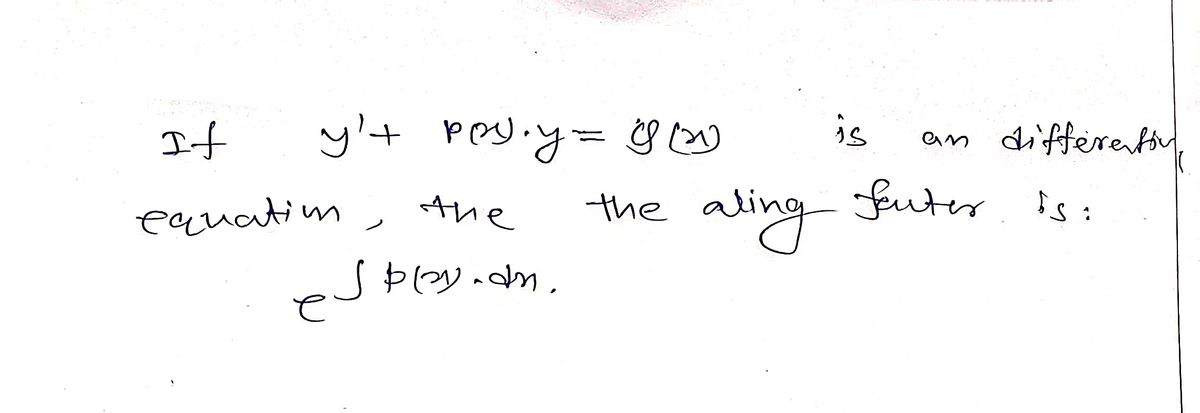 If y'+ p(x).y = g(x) is an differential
equation, the the aling fauter is:
e^∫ p(x).dx.